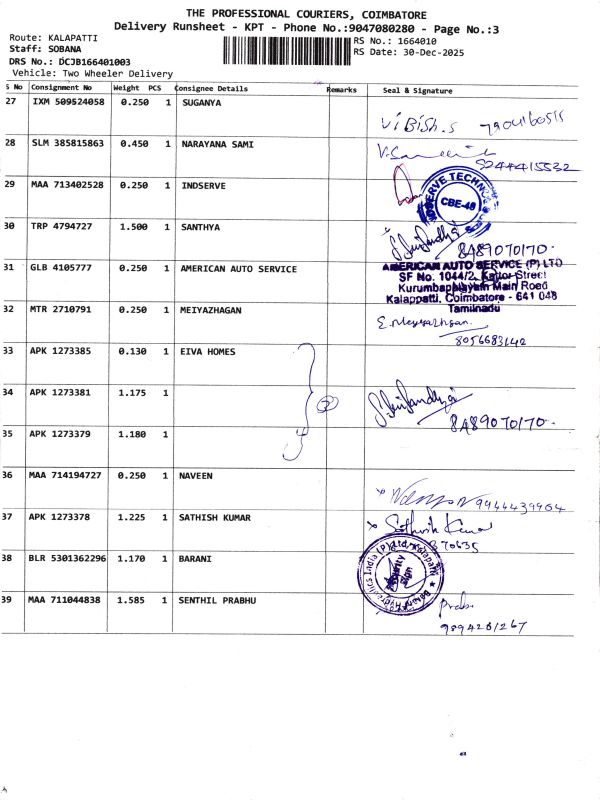 THE PROFESSIONAL COURIERS, COIMBATORE
Delivery Runsheet - KPT - Phone No.:9047080280 - Page No.:3
Route: KALAPATTI
Staff: SOBANA
DRS No.: DCJB166401003
Vehicle: Two Wheeler Delivery
RS No.: 1664010
RS Date: 30-Dec-2025
S No Consignment No Weight PCS Consignee Details Remarks Seal & Signature
27 IXM 509524058 0.250 1 SUGANYA
28 SLM 385815863 0.450 1 NARAYANA SAMI
9244415532
29 MAA 713402528 0.250 1 INDSERVE
CBE-48
30 TRP 4794727 1.500 1 SANTHYA
8489070170.
31 GLB 4105777 0.250 1 AMERICAN AUTO SERVICE
AMERICAN AUTO SERVICE (P) LTD
SF No. 1044/2, Kattor Street
Kurumbapalayam Main Road
Kalappatti, Coimbatore - 641 048
Tamilnadu
32 MTR 2710791 0.250 1 MEIYAZHAGAN
E. Meiyazhagan
8056683142
33 APK 1273385 0.130 1 EIVA HOMES
34 APK 1273381 1.175 1
8489070170.
35 APK 1273379 1.180 1
36 MAA 714194727 0.250 1 NAVEEN
9944439904
37 APK 1273378 1.225 1 SATHISH KUMAR
Sathish Kumar
870635
38 BLR 5301362296 1.170 1 BARANI
Security Sign
39 MAA 711044838 1.585 1 SENTHIL PRABHU